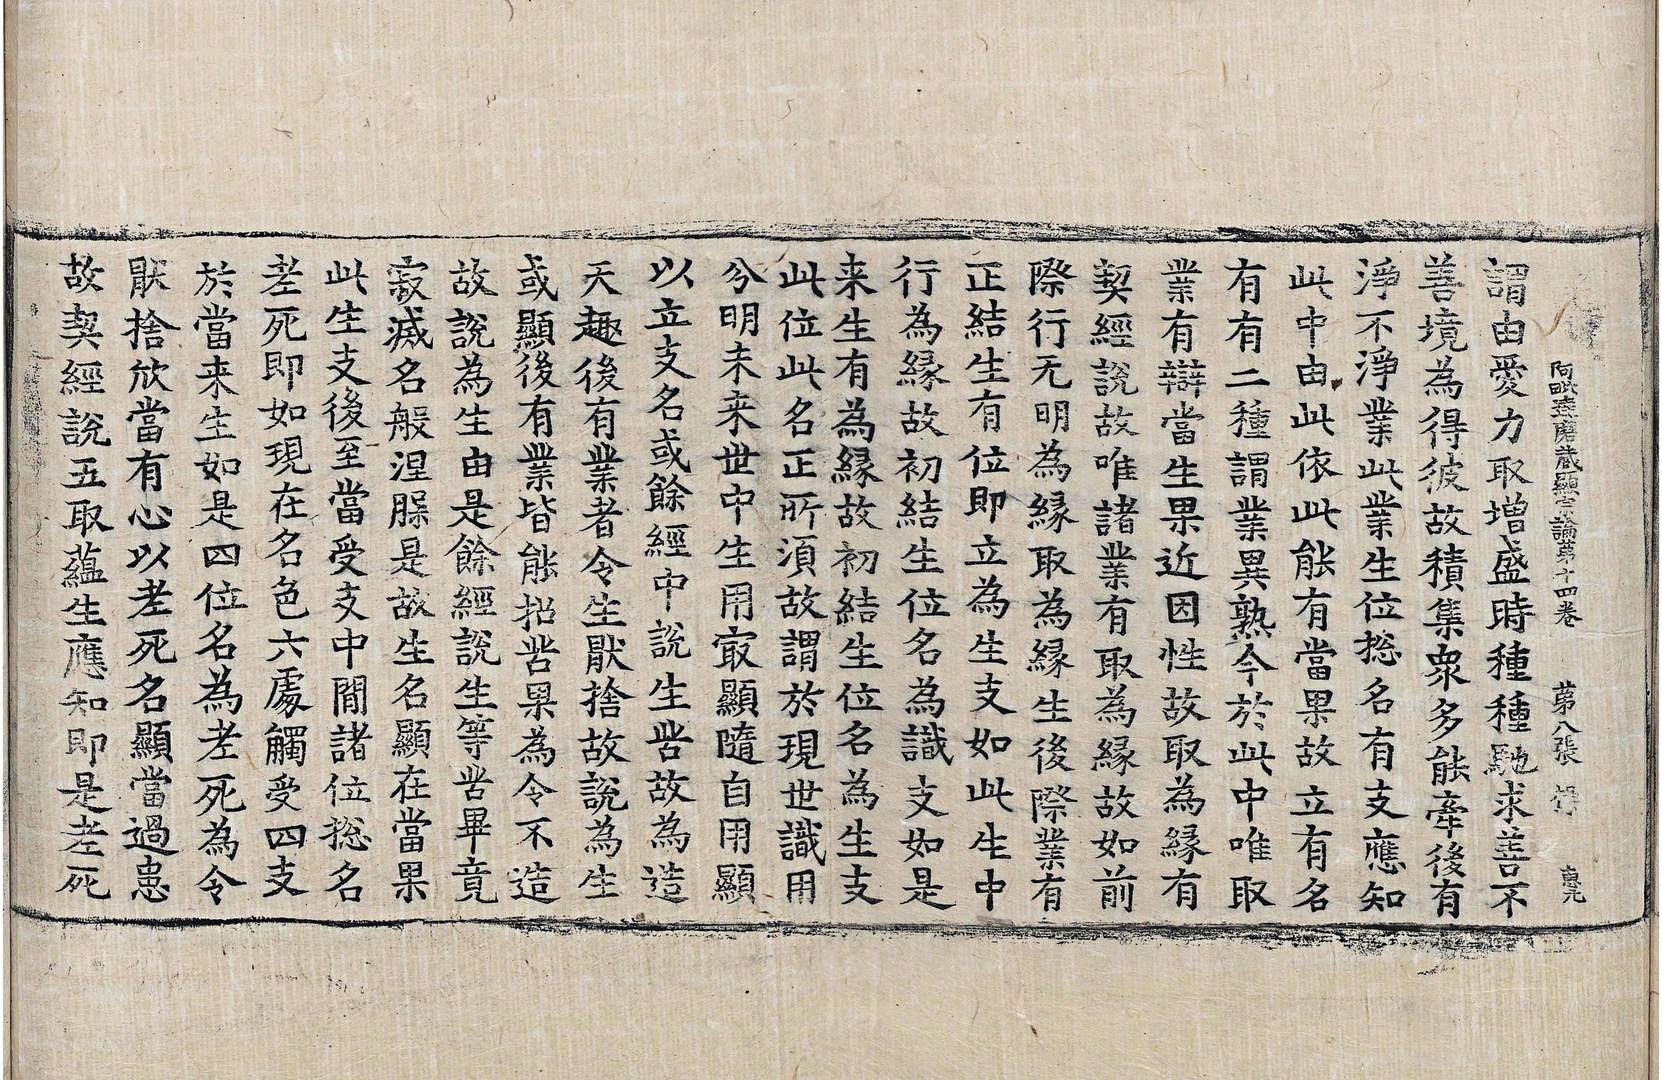 阿毗達磨藏顯宗論第十四卷 第八張 惠元
謂由愛力取增盛時種種馳求善不
善境為得彼故積集衆多能牽後有
淨不淨業此業生位捴名有支應知
此中由此依此能有當果故立有名
有有二種謂業異熟今於此中唯取
業有辯當生果近因性故取為縁有
契經說故唯諸業有取為縁故如前
際行无明為縁取為縁生後際業有
正結生有位即立為生支如此生中
行為縁故初結生位名為識支如是
来生有為縁故初結生位名為生支
此位此名正所湏故謂於現世識用
分明未来世中生用㝡顯隨自用顯
以立支名或餘經中說生苦故為造
天趣後有業者令生猒捨故說為生
或顯後有業皆能招苦果為令不造
故說為生由是餘經說生等苦畢竟
寂滅名般涅槃是故生名顯在當果
此生支後至當受支中間諸位捴名
老死即如現在名色六處觸受四支
於當来生如是四位名為老死為令
猒捨欣當有心以老死名顯當過患
故契經說五取蘊生應知即是老死